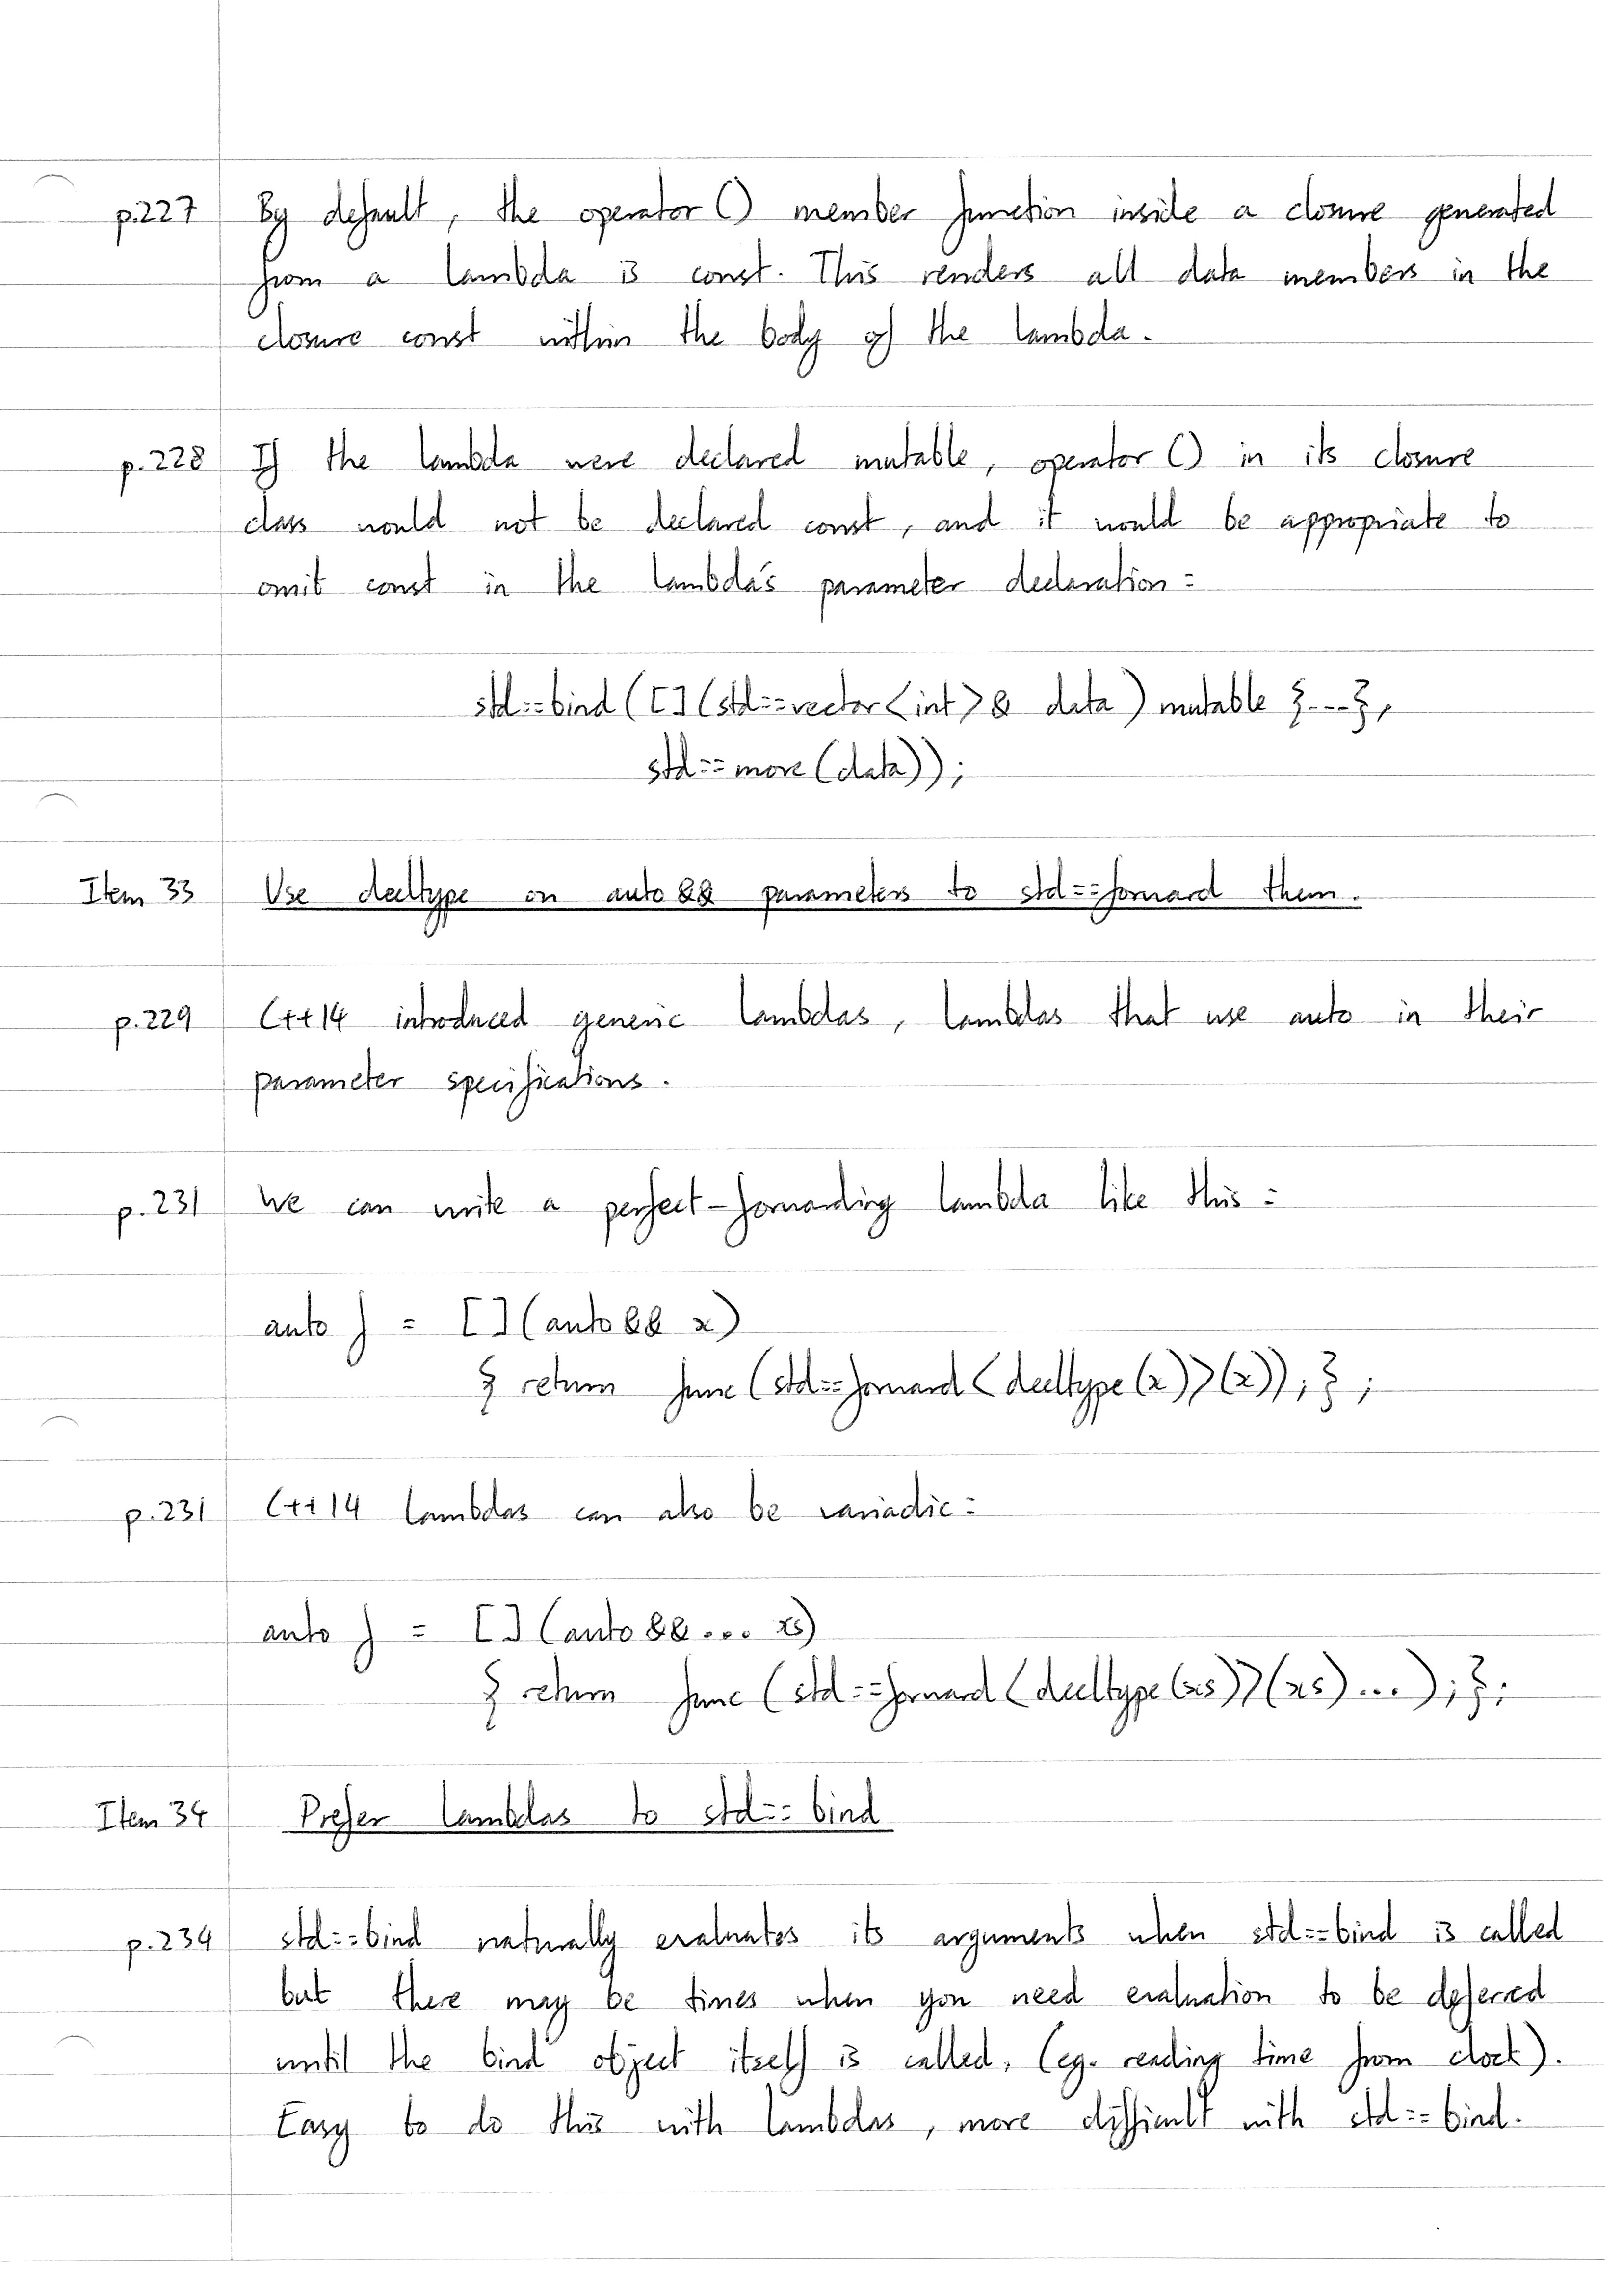 p.227 By default, the operator () member function inside a closure generated
from a lambda is const. This renders all data members in the
closure const within the body of the lambda.
p.228 If the lambda were declared mutable, operator () in its closure
class would not be declared const, and it would be appropriate to
omit const in the lambda's parameter declaration:
std::bind ([] (std::vector<int>& data) mutable {...},
std::move (data));
Item 33 Use decltype on auto && parameters to std::forward them.
p.229 C++14 introduced generic lambdas, lambdas that use auto in their
parameter specifications.
p.231 We can write a perfect-forwarding lambda like this:
auto f = [] (auto && x)
{ return func (std::forward<decltype(x)>(x)); };
p.231 C++14 lambdas can also be variadic:
auto f = [] (auto &&... xs)
{ return func (std::forward<decltype(xs)>(xs)...); };
Item 34 Prefer lambdas to std::bind
p.234 std::bind naturally evaluates its arguments when std::bind is called
but there may be times when you need evaluation to be deferred
until the bind object itself is called, (eg. reading time from clock).
Easy to do this with lambdas, more difficult with std::bind.